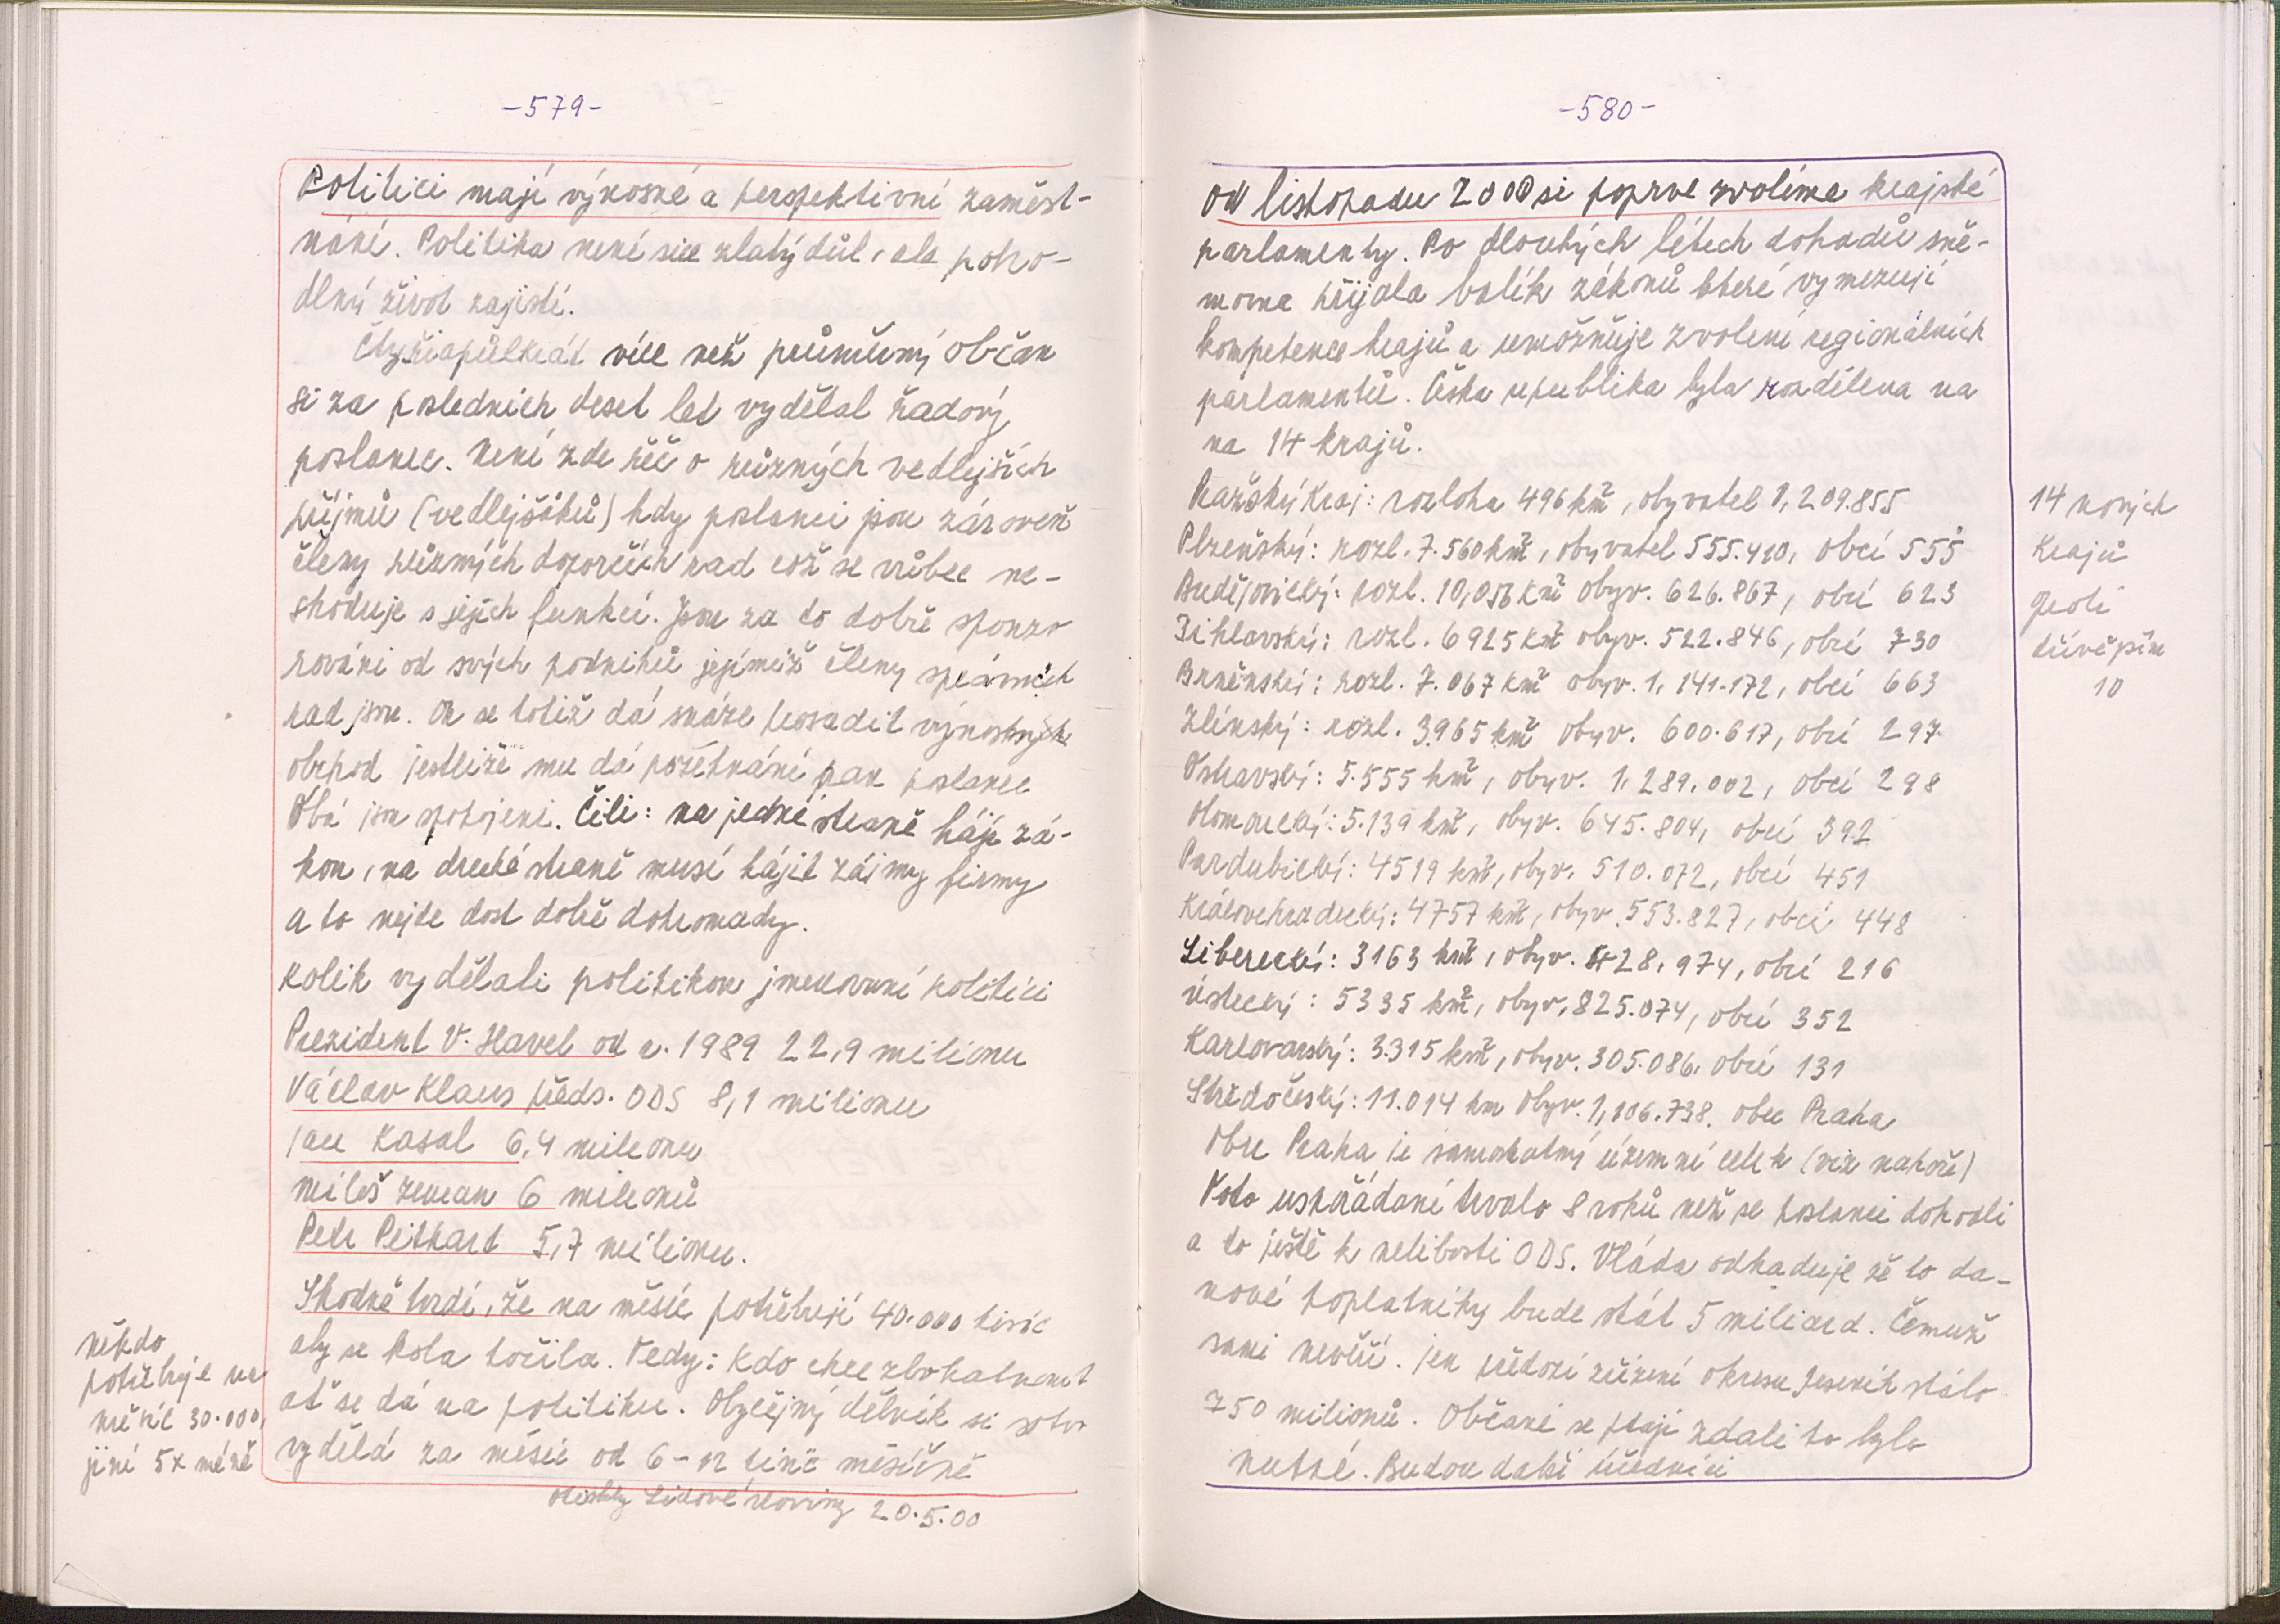 -579-
Politici mají výnosné a perspektivní zaměst-
nání. Politika není sice zlatý důl, ale poho-
dlný život zajistí.
Čtyřiapůlkrát více než průměrný občan
si za posledních deset let vydělal řadový
poslanec. Není zde řeč o různých vedlejších
příjmů (vedlejšáků) kdy poslanci jsou zároveň
členy různých dozorčích rad což se vůbec ne-
shoduje s jejich funkcí. Jsou za to dobře sponzo
rováni od svých podniků jejímiž členy správních
rad jsou. On se totiž dá snáze prosadit výnosných
obchod jestliže mu dá požehnání pan poslanec
Oba jsou spokojeni. Čili: na jedné straně hájí zá-
kon, na druhé straně musí hájit zájmy firmy
a to nejde dost dobře dohromady.
Kolik vydělali politikou jmenovaní politici
Prezident V. Havel od r. 1989 22,9 milionu
Václav Klaus předs. ODS 8,1 milionu
Jan Kasal 6,4 milionu
Miloš Zeman 6 milionů
Petr Pithart 5,7 milionu.
Shodně tvrdí, že na měsíc potřebují 40.000 tisíc
aby se kola točila. Tedy: Kdo chce zbohatnout
ať se dá na politiku. Obyčejný dělník si sotva
vydělá za měsíc od 6-12 tisíc měsíčně
otiskly Lidové noviny 20.5.00
někdo
potřebuje na
měsíc 30.000,
jiní 5x méně
-580-
Od listopadu 2000 si poprve zvolíme krajské
parlamenty. Po dlouhých létech dohadů sně-
movna přijala balík zákonů které vymezují
kompetence krajů a umožnuje zvolení regionálních
parlamentů. Česka republika byla rozdělena na
na 14 krajů.
Pražský kraj: rozloha 496 km², obyvatel 1,209.855
Plzeňský: rozl. 7.560 km², obyvatel 555.410, obcí 555
Budějovický: rozl. 10,056 km² obyv. 626.867, obcí 623
Jihlavský: rozl. 6925 km² obyv. 522.846, obcí 730
Brněnský: rozl. 7.067 km² obyv. 1,141.172, obcí 663
Zlínský: rozl. 3.965 km² obyv. 600.617, obcí 297
Ostravský: 5.555 km², obyv. 1,289.002, obcí 298
Olomoucký: 5.139 km², obyv. 645.804, obcí 392
Pardubický: 4519 km², obyv. 510.072, obcí 451
Královehradecký: 4757 km², obyv. 553.827, obcí 448
Liberecký: 3163 km², obyv. 428.974, obcí 216
Ústecký: 5335 km², obyv. 825.074, obcí 352
Karlovarský: 3.315 km², obyv. 305.086, obcí 131
Středočeský: 11.014 km obyv. 1,106.738. obec Praha
Obec Praha je samostatný územní celek (viz nahoře)
Toto uspořádaní trvalo 8 roků než se poslanci dohodli
a to ještě k nelibosti ODS. Vláda odhaduje že to da-
nové poplatníky bude stát 5 miliard. Čemuž
sami nevěří. Jen zřízení okresu Jeseník stálo
750 milionů. Občané se ptají zdali to bylo
nutné. Budou další úředníci
14 nových
krajů
proti
dřívějším
10